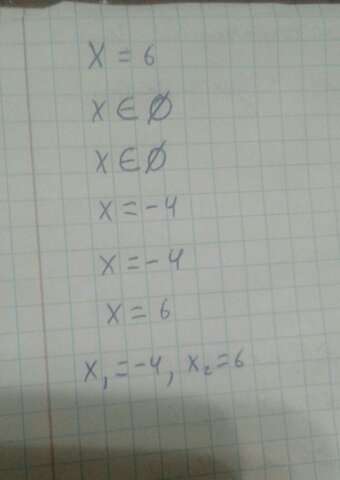 x = 6
x ∈ ∅
x ∈ ∅
x = -4
x = -4
x = 6
x₁ = -4, x₂ = 6